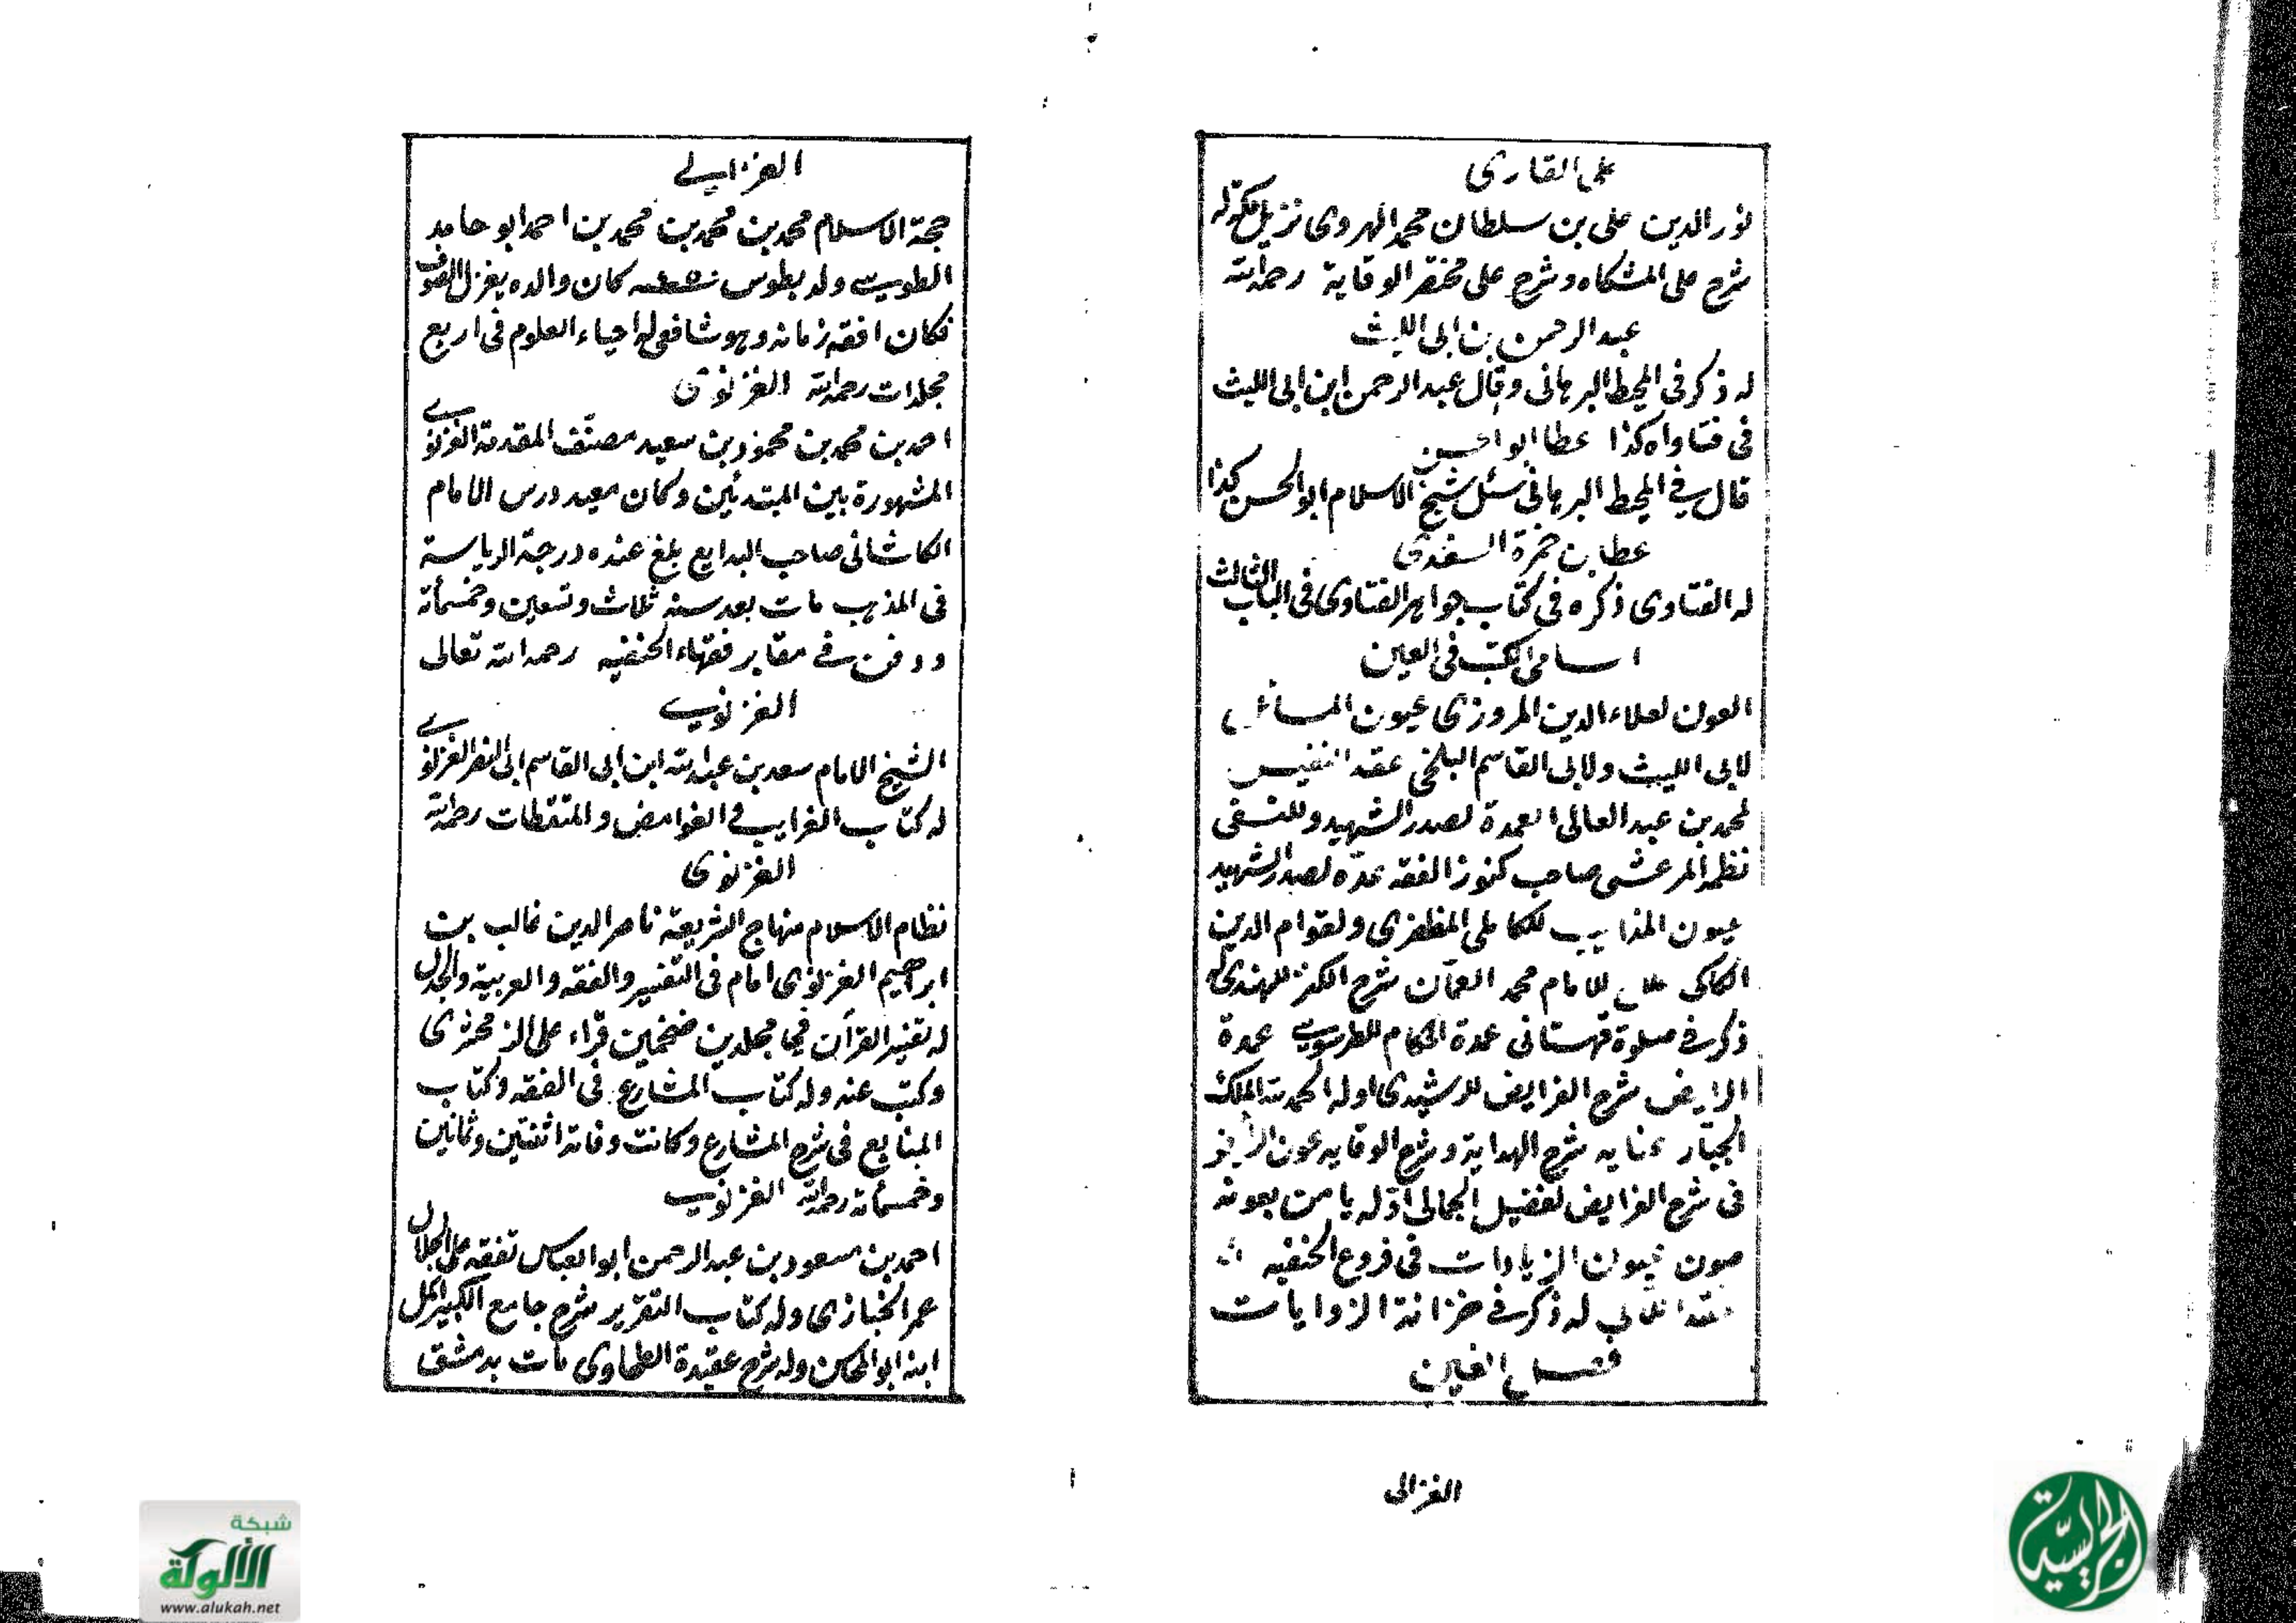 على القارى
نور الدين على بن سلطان محمد الهروى نزيل مكة له
شرح على المشكاه وشرح على مختصر الوقاية رحمه الله
عبد الرحمن بن ابى الليث
له ذكر فى المحيط البرهانى وقال عبد الرحمن ابن ابى الليث
فى فتاواه كذا عطا ابو الحسن
قال فى المحيط البرهانى سئل شيخ الاسلام ابو الحسن كذا
عطا بن حمزة السغدى
له الفتاوى ذكره فى كتاب جواهر الفتاوى فى الباب الثالث
اسامى الكتب فى العين
العون لعلاء الدين المروزى عيون المسائل
لابى الليث ولابى القاسم البلخى عقد النفيس
لمحمد بن عبد العالى العمدة لصدر الشهيد وللنسفى
نظمه المرعشى صاحب كنوز الفقه عدة لصدر الشهيد
عيون المذاهب للكاملى المظفرى ولقوام الدين
الكاكى للامام محمد شرح الكنز للهندى له
ذكر فى صلوة قهستانى عدة الحكام للطرسوسى عمدة
شرح الفرايض للرشيدى اوله الحمد لله الملك
الجبار عنايه شرح الهداية وشرح الوقايه عون
فى شرح الفرايض لفضيل الجمالى اوله يا من بعونه
صون عيون الزيادات فى فروع الحنفيه
له ذكر فى خزانة الروايات
فصل الغين
الغزالى
الغزالى
حجة الاسلام محمد بن محمد بن محمد بن احمد ابو حامد
الطوسى ولد بطوس كان والده يغزل الصوف
فكان افقه زمانه وهو شافعى له احياء العلوم فى اربع
مجلدات رحمه الله الغزنوى
احمد بن محمد بن محمود بن سعيد مصنّف المقدمة الغزنوى
المشهورة بين المبتدئين وكان معيد درس الامام
الكاشانى صاحب البدايع بلغ عنده درجة الرياسة
فى المذهب مات بعد سنه ثلاث وتسعين وخمسمائة
ودفن فى مقابر فقهاء الحنفيه رحمه الله تعالى
الغزنوى
الشيخ الامام سعد بن عبد الله ابن ابى القاسم ابى النصر الغزنوى
له كتاب الغرايب فى الغوامض والملتقطات رحمه الله
الغزنوى
نظام الاسلام منهاج الشريعة ناصر الدين غالب بن
ابرهيم الغزنوى امام فى التفسير والفقه والعربية والجدل
له تفسير القرآن فى مجلدين ضخمين قراء على الزمخشرى
وكتب عنه وله كتاب المشارع فى الفقه وكتاب
المنابع فى شرح المشارع وكانت وفاته اثنتين وثمانين
وخمسمائة رحمه الله الغزنوى
احمد بن مسعود بن عبد الرحمن ابو العباس تفقه على الجلال
عمر الخبازى وله كتاب التقرير شرح جامع الكبير اكمل
ابنه ابو المحاسن وله شرح عقيدة الطحاوى مات بدمشق
شبكة
الألوكة
www.alukah.net